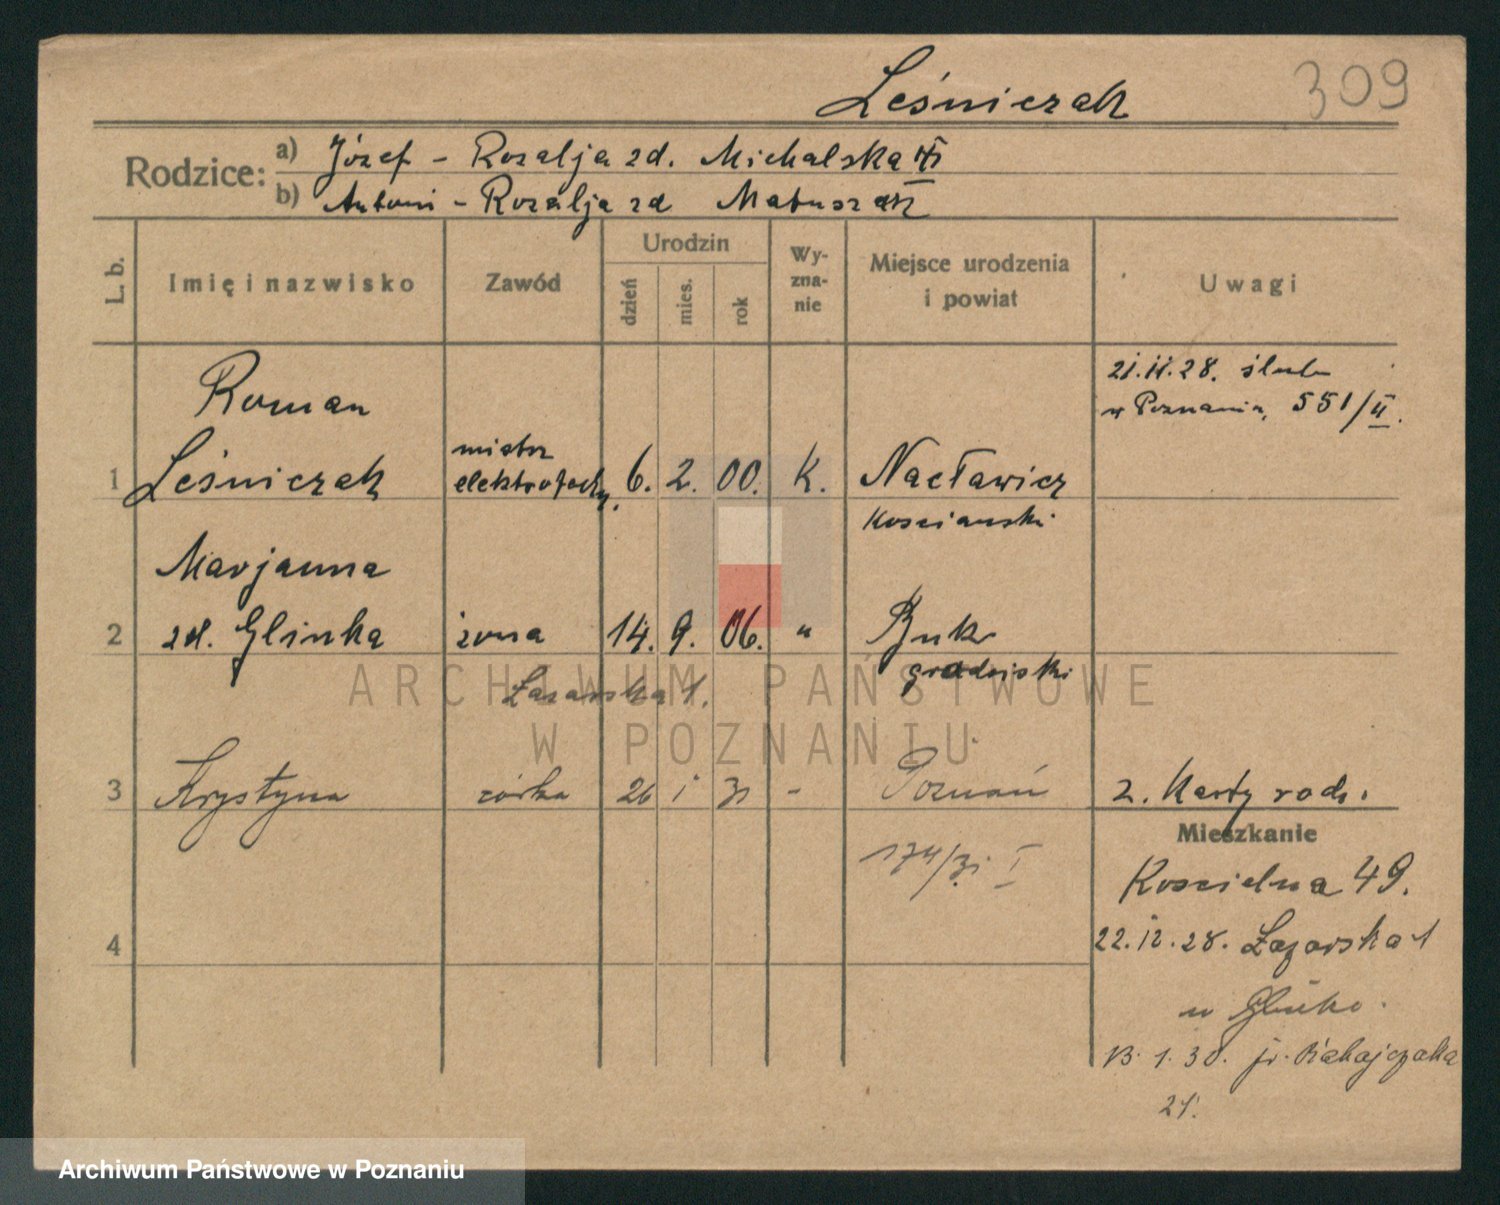 Leśniczak
309
Rodzice:
a) Józef - Rozalja zd. Michalska
b) Antoni - Rozalja zd Matuszak
L. b.
Imię i nazwisko
Zawód
Urodzin
dzień
mies.
rok
Wy-
zna-
nie
Miejsce urodzenia
i powiat
Uwagi
21.11.28. ślub
w Poznaniu, 551/II.
Roman
1 Leśniczak
mistrz
elektrotechn.
6. 2. 00. K. Nacławicz
Kosciański
Marjanna
2 zd. Glinka żona 14. 9. 06. " Buk
grodziski
Łazarska 1.
3 Krystyna córka 26 1 31 - Poznań
z. Karty rodz.
174/31 I
4
Mieszkanie
Koscielna 49.
22.12.28. Łazarska 1
u Glinka.
13. 1. 30.
21.
ARCHIWUM PAŃSTWOWE
W POZNANIU
Archiwum Państwowe w Poznaniu